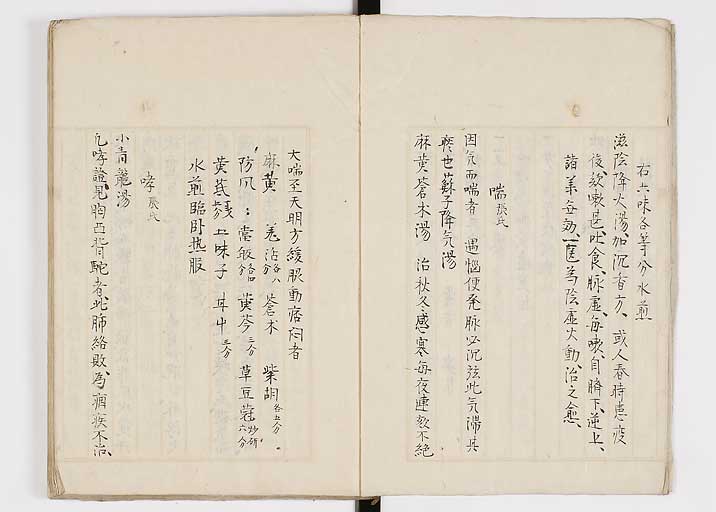 右六味各等分水煎
滋陰降火湯、加沉香方、或人春時患疫
後、欬嗽甚、吐食、脉虛、每嗽、自臍下、逆上、
諸薬無効、一医為陰虛火動、治之愈、
喘 張氏
因気而喘者 遇惱便発脉必沉弦此気滞其
痰也蘇子降気湯
麻黄蒼朮湯 治秋冬感寒每夜連聲不絶
大喘至天明方緩眼動痞悶者
麻黄 羌活 蒼朮 柴胡 各五分
防風 當皈 黄芩 三分 草豆蔲 炒研 六分
黄芪 五味子 甘中 三分
水煎臨卧热服
哮 張氏
小青龍湯
凡哮證、見胸凸背駝者、此肺絡敗、為痼疾不治、